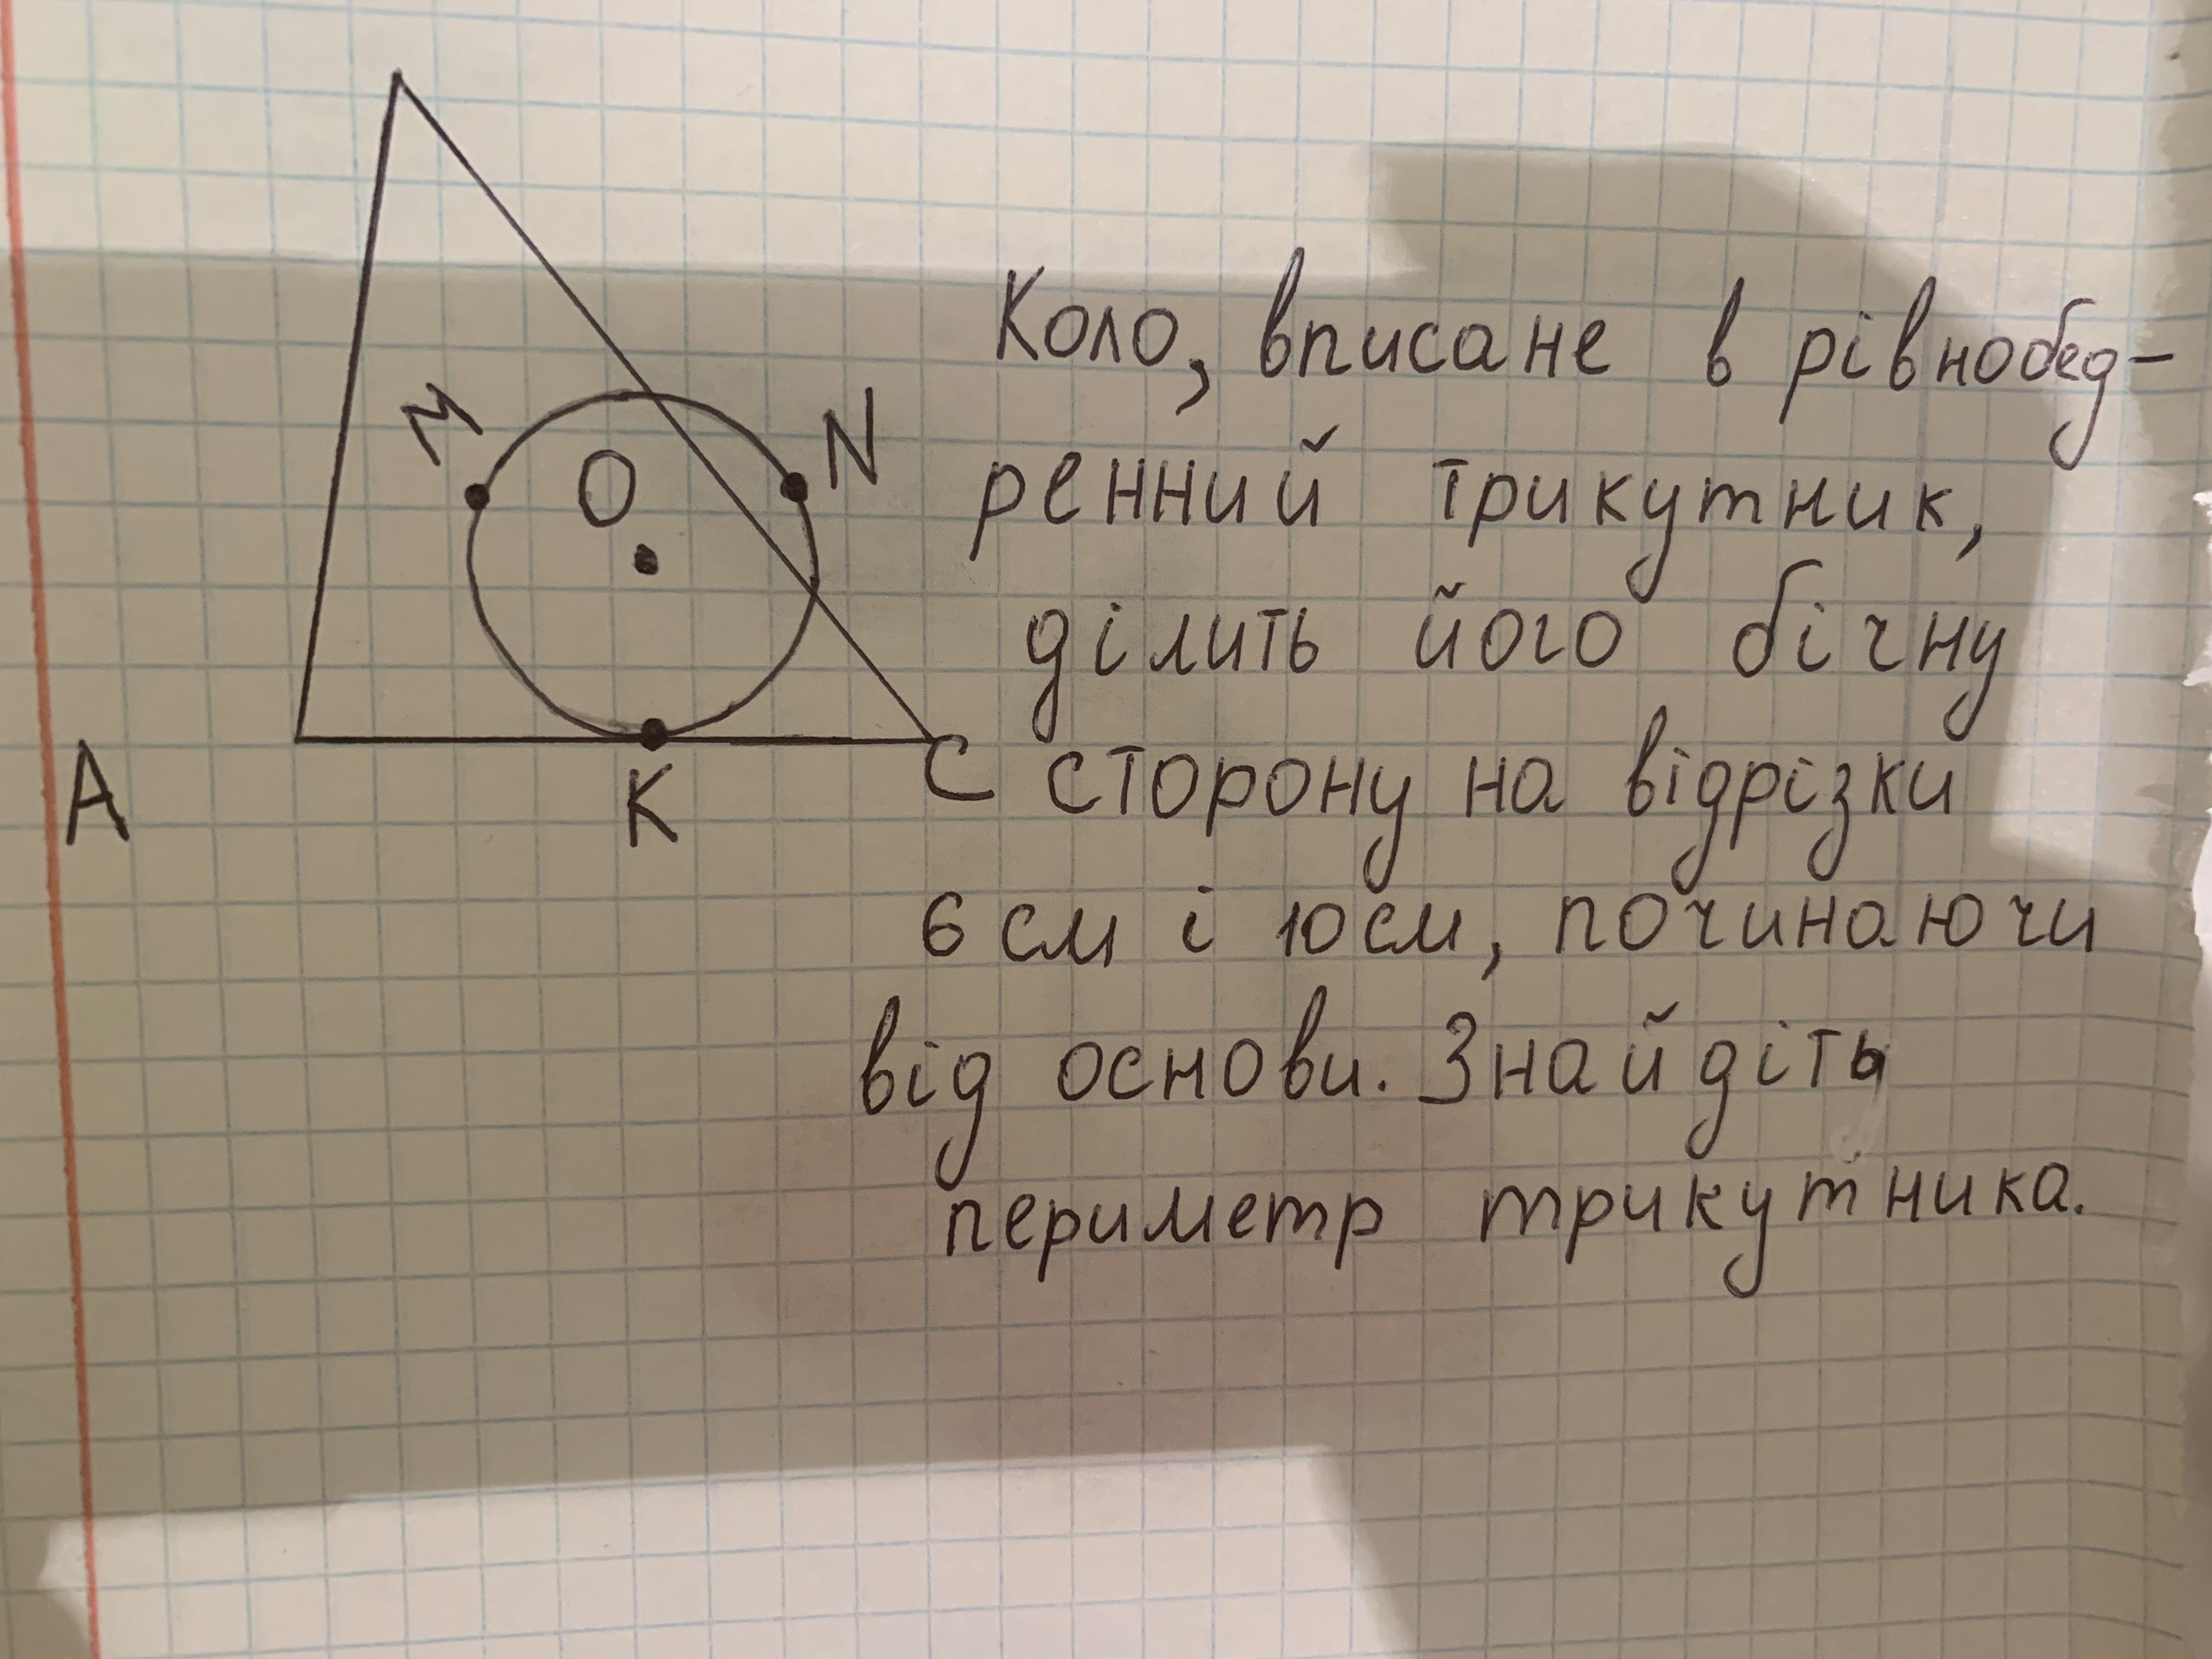 M
N
O
A
K
C
Коло, вписане в рівнобед-
ренний трикутник,
ділить його бічну
сторону на відрізки
6 см і 10 см, починаючи
від основи. Знайдіть
периметр трикутника.